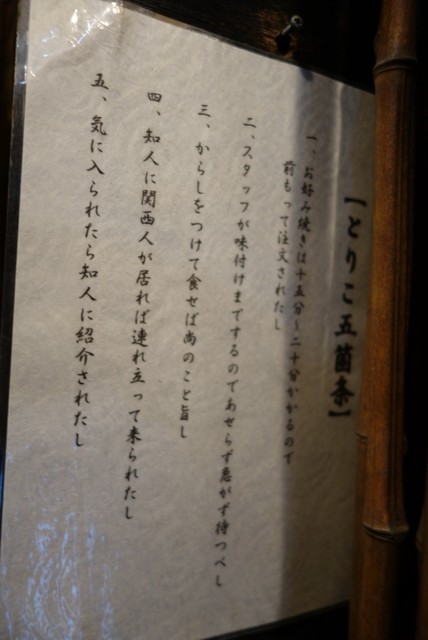 【とりこ五箇条】
一、お好み焼きは十五分〜二十分かかるので
前もって注文されたし
二、スタッフが味付けまでするのであせらず急がず待つべし
三、からしをつけて食せば尚のこと旨し
四、知人に関西人が居れば連れ立って来られたし
五、気に入られたら知人に紹介されたし